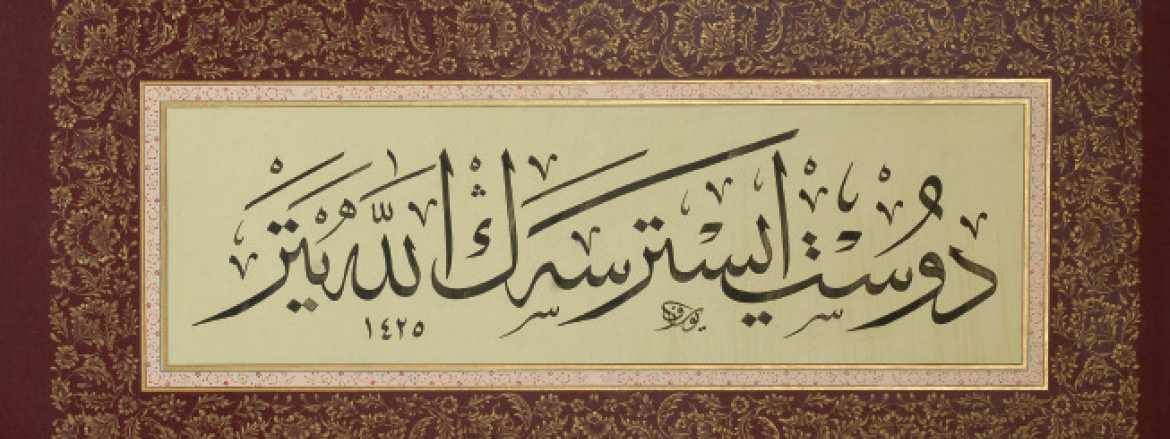 دوست ایسترسه‌ڭ الله یتر
١٤٢٥